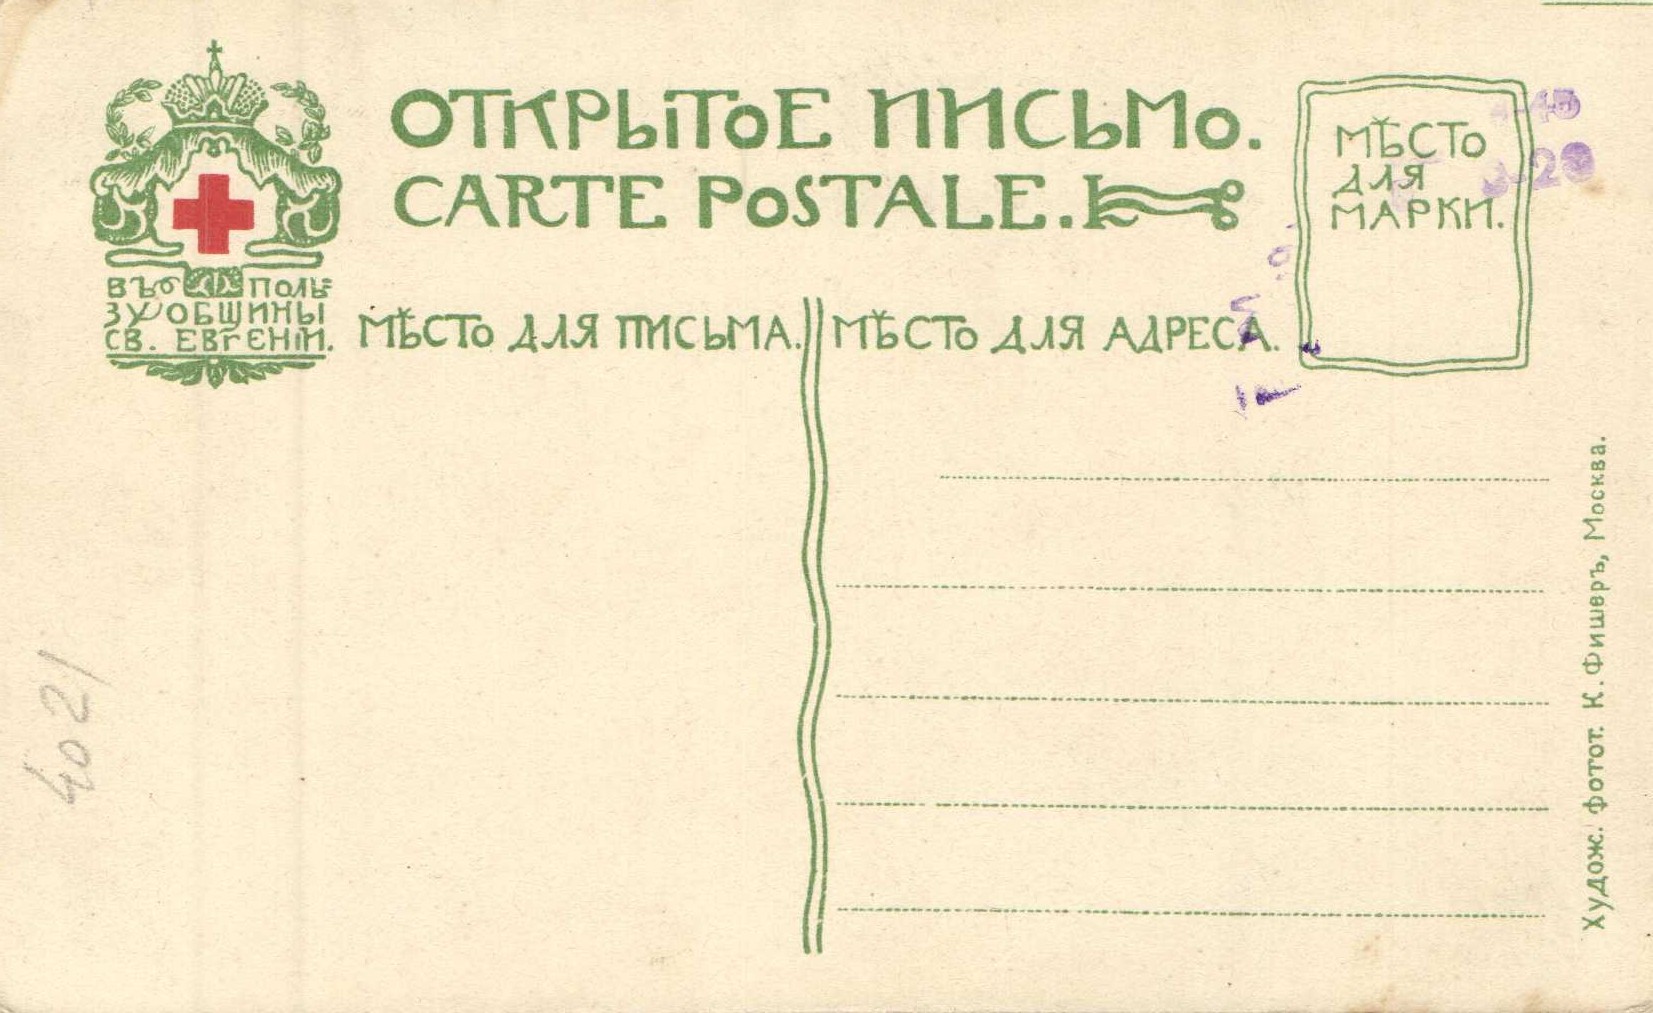 ОТКРЫТОЕ ПИСЬМО.
CARTE POSTALE.
МѢСТО
ДЛЯ
МАРКИ.
ВЪ ПОЛЬ=
ЗУ ОБЩИНЫ
СВ. ЕВГЕНІИ.
МѢСТО ДЛЯ ПИСЬМА.
МѢСТО ДЛЯ АДРЕСА.
Худож. фотот. К. Фишеръ, Москва.
4021